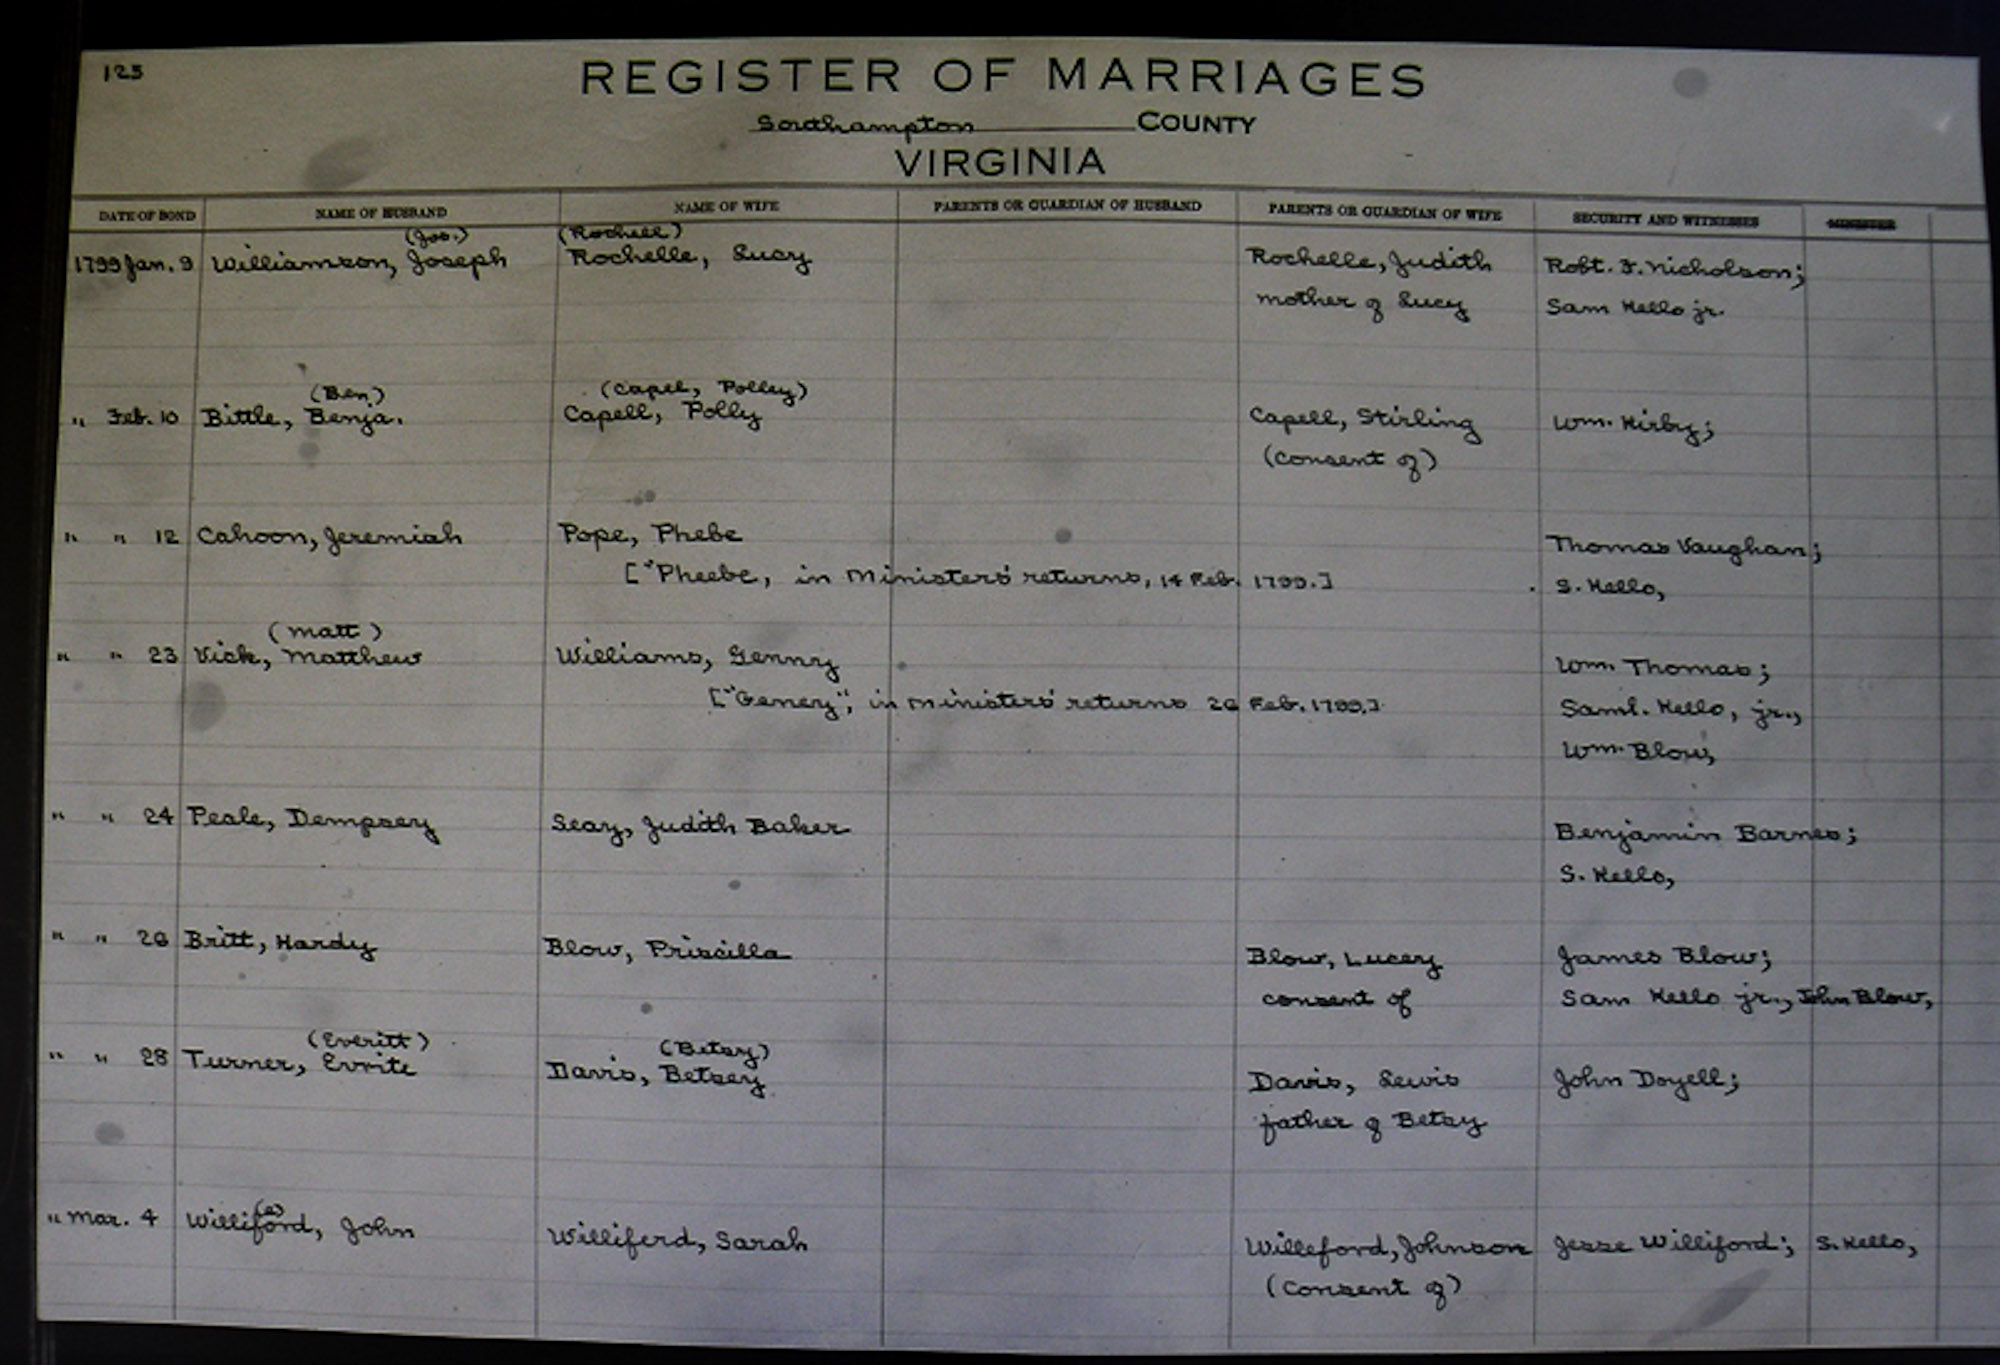 125
REGISTER OF MARRIAGES
Southampton COUNTY
VIRGINIA
DATE OF BOND NAME OF HUSBAND NAME OF WIFE PARENTS OR GUARDIAN OF HUSBAND PARENTS OR GUARDIAN OF WIFE SECURITY AND WITNESSES MINISTER
(Jos.) (Rochell)
1799 Jan. 9 Williamson, Joseph Rochelle, Lucy Rochelle, Judith Robt. F. Nicholson;
mother of Lucy Sam Kello jr.
(Ben) (Capel, Polley)
" Feb. 10 Bittle, Benja. Capell, Polly Capell, Stirling Wm. Kirby;
(consent of)
" " 12 Cahoon, Jeremiah Pope, Phebe Thomas Vaughan;
["Pheebe, in Ministers' returns, 14 Feb. 1799.] S. Kello,
(Matt)
" " 23 Vick, Matthew Williams, Genny Wm. Thomas;
["Geney", in Ministers' returns 26 Feb. 1799.] Saml. Kello, jr.,
Wm. Blow,
" " 24 Peale, Dempsey Seay, Judith Baker Benjamin Barnes;
S. Kello,
" " 26 Britt, Hardy Blow, Priscilla Blow, Lucey James Blow;
consent of Sam Kello jr., John Blow,
(Everitt) (Betsy)
" " 28 Turner, Evrite Davis, Betsey Davis, Lewis John Doyell;
father of Betsy
(e)
" Mar. 4 Williford, John Williferd, Sarah Willeford, Johnson Jesse Williford; S. Kello,
(Consent of)